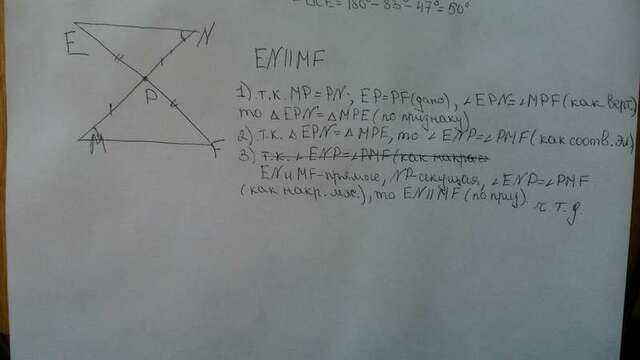 ∠DCE = 180° - 83° - 47° = 50°
E
N
P
M
F
EN||MF
1) т.к. MP = PN, EP = PF (дано), ∠EPN = ∠MPF (как верт),
то △EPN = △MPE (по признаку)
2) т.к. △EPN = △MPE, то ∠ENP = ∠PMF (как соотв. эл)
3) т.к. ∠ENP = ∠PMF (как накр
EN и MF - прямые, NP - секущая, ∠ENP = ∠PMF
(как накр. леж.), то EN||MF (по приз).
ч.т.д.